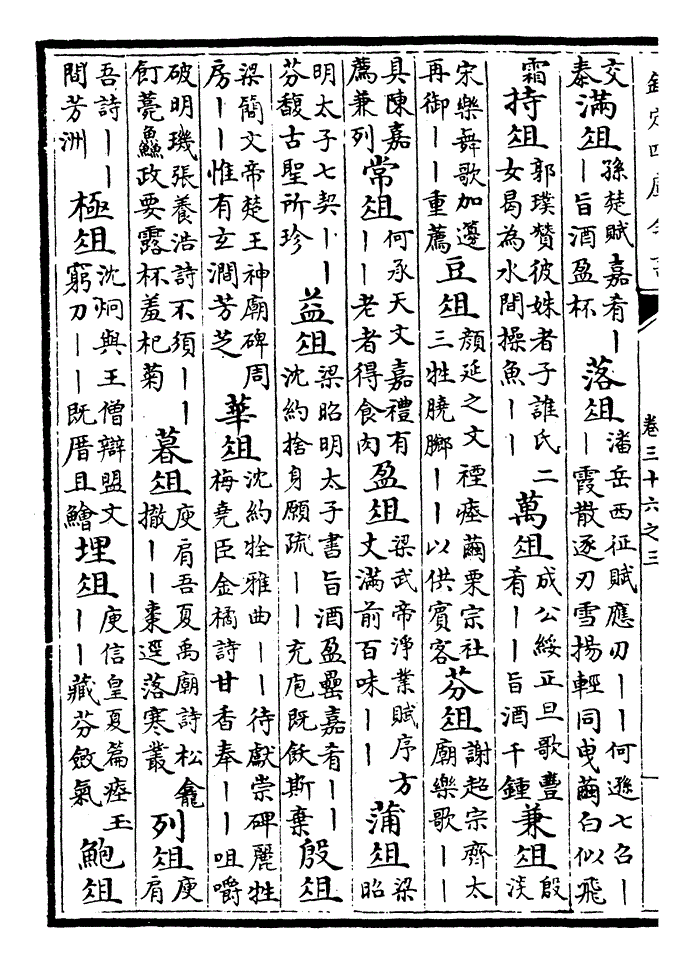 欽定四庫全書
卷三十六之三
交泰 滿俎 孫楚賦嘉肴｜｜旨酒盈杯 落俎 潘岳西征賦應刃｜｜何遜七召｜｜霞散逐刃雪揚輕同曳繭白似飛
霜 持俎 郭璞贊彼姝者子誰氏二女曷為水間操魚｜｜ 萬俎 成公綏正旦歌豐肴｜｜旨酒千鍾 兼俎 殷淡
宋樂舞歌加籩再御｜｜重薦 豆俎 顏延之文禋瘞繭栗宗社三牲膮膷｜｜以供賓客 芬俎 謝超宗齊太廟樂歌｜｜
具陳嘉薦兼列 常俎 何承天文嘉禮有｜｜老者得食肉 盈俎 梁武帝淨業賦序方丈滿前百味｜｜ 蒲俎 梁昭
明太子七契｜｜芬馥古聖所珍 益俎 梁昭明太子書旨酒盈罍嘉肴｜｜沈約捨身願疏｜｜充庖既飫斯棄 殷俎
梁簡文帝楚王神廟碑周房｜｜惟有玄澗芳芝 華俎 沈約牷雅曲｜｜待獻崇碑麗牲梅堯臣金橘詩甘香奉｜｜咀嚼
破明璣張養浩詩不須｜｜飣薨鱻政要露杯羞杞菊 暮俎 庾肩吾夏禹廟詩松龕撤｜｜棗逕落寒叢 列俎 庾肩
吾詩｜｜問芳洲 極俎 沈炯與王僧辯盟文窮刀｜｜既厝且鱠 埋俎 庾信皇夏篇瘞玉｜｜藏芬斂氣 鮑俎